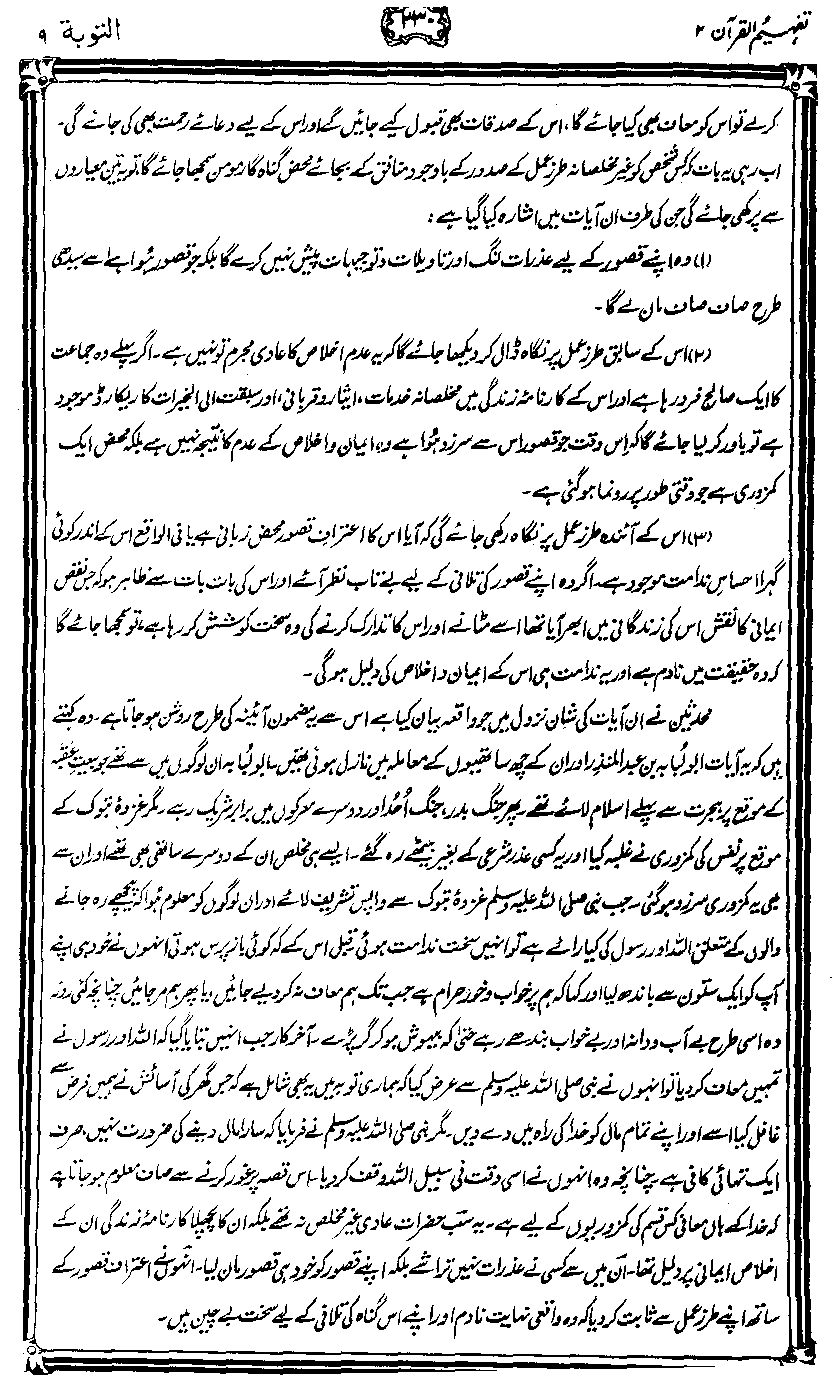 تفہیم القرآن ۲
۲۳۰
التوبۃ ۹
کرے تو اس کو معاف بھی کیا جائے گا، اس کے صدقات بھی قبول کیے جائیں گے اور اس کے لیے دعائے رحمت بھی کی جائے گی۔
اب رہی یہ بات کہ کس شخص کو غیر مخلصانہ طرزِ عمل کے صدور کے باوجود منافق کے بجائے محض گناہ گار مومن سمجھا جائے گا، تو یہ تین معیاروں
سے پرکھی جائے گی جن کی طرف ان آیات میں اشارہ کیا گیا ہے:
(۱) وہ اپنے قصور کے لیے عذرات لنگ اور تاویلات و توجیہات پیش نہیں کرے گا بلکہ جو قصور ہُوا ہے اسے سیدھی
طرح صاف صاف مان لے گا۔
(۲) اس کے سابق طرزِ عمل پر نگاہ ڈال کر دیکھا جائے گا کہ یہ عدم اخلاص کا عادی مجرم تو نہیں ہے۔ اگر پہلے وہ جماعت
کا ایک صالح فرد رہا ہے اور اس کے کارنامۂ زندگی میں مخلصانہ خدمات، ایثار و قربانی، اور سبقت الی الخیرات کا ریکارڈ موجود
ہے تو باور کر لیا جائے گا کہ اس وقت جو قصور اس سے سرزد ہُوا ہے وہ ایمان و اخلاص کے عدم کا نتیجہ نہیں ہے بلکہ محض ایک
کمزوری ہے جو وقتی طور پر رونما ہو گئی ہے۔
(۳) اس کے آئندہ طرزِ عمل پر نگاہ رکھی جائے گی کہ آیا اس کا اعترافِ قصور محض زبانی ہے یا فی الواقع اس کے اندر کوئی
گہرا احساسِ ندامت موجود ہے۔ اگر وہ اپنے قصور کی تلافی کے لیے بے تاب نظر آئے اور اس کی بات بات سے ظاہر ہو کہ جس نقص
ایمانی کا نقش اس کی زندگانی میں ابھر آیا تھا اسے مٹانے اور اس کا تدارک کرنے کی وہ سخت کوشش کر رہا ہے، تو سمجھا جائے گا
کہ وہ حقیقت میں نادم ہے اور یہ ندامت ہی اس کے ایمان و اخلاص کی دلیل ہو گی۔
محدثین نے ان آیات کی شانِ نزول میں جو واقعہ بیان کیا ہے اس سے یہ مضمون آئینہ کی طرح روشن ہو جاتا ہے۔ وہ کہتے
ہیں کہ یہ آیات ابولُبابہ بن عبدالمنذر اور ان کے چھ ساتھیوں کے معاملہ میں نازل ہوئی تھیں۔ ابولُبابہ ان لوگوں میں سے تھے جو بیعتِ عقبہ
کے موقع پر ہجرت سے پہلے اسلام لائے تھے۔ پھر جنگ بدر، جنگ اُحُد اور دوسرے معرکوں میں برابر شریک رہے۔ مگر غزوۂ تبوک کے
موقع پر نفس کی کمزوری نے غلبہ کیا اور یہ کسی عذر شرعی کے بغیر بیٹھے رہ گئے۔ ایسے ہی مخلص ان کے دوسرے ساتھی بھی تھے اور ان سے
بھی یہ کمزوری سرزد ہو گئی۔ جب نبی صلی اللہ علیہ وسلم غزوۂ تبوک سے واپس تشریف لائے اور ان لوگوں کو معلوم ہُوا کہ پیچھے رہ جانے
والوں کے متعلق اللہ اور رسول کی کیا رائے ہے تو انہیں سخت ندامت ہوئی قبل اس کے کہ کوئی باز پرس ہوتی انہوں نے خود ہی اپنے
آپ کو ایک ستون سے باندھ لیا اور کہا کہ ہم پر خواب و خور حرام ہے جب تک ہم معاف نہ کر دیے جائیں، یا پھر ہم مر جائیں چنانچہ کئی روز
وہ اسی طرح بے آب و دانہ اور بے خواب بندھے رہے حتّٰی کہ بیہوش ہو کر گر پڑے۔ آخرکار جب انہیں بتایا گیا کہ اللہ اور رسول نے
تمہیں معاف کر دیا تو انہوں نے نبی صلی اللہ علیہ وسلم سے عرض کیا کہ ہماری توبہ میں یہ بھی شامل ہے کہ جس گھر کی آسائش نے ہمیں فرض سے
غافل کیا اسے اور اپنے تمام مال کو خدا کی راہ میں دے دیں۔ مگر نبی صلی اللہ علیہ وسلم نے فرمایا کہ سارا مال دینے کی ضرورت نہیں، صرف
ایک تہائی کافی ہے۔ چنانچہ وہ انہوں نے اسی وقت فی سبیل اللہ وقف کر دیا۔ اس قصہ پر غور کرنے سے صاف معلوم ہو جاتا ہے
کہ خدا کے ہاں معافی کس قسم کی کمزوریوں کے لیے ہے۔ یہ سب حضرات عادی غیر مخلص نہ تھے بلکہ ان کا پچھلا کارنامۂ زندگی ان کے
اخلاص ایمانی پر دلیل تھا۔ ان میں سے کسی نے عذرات نہیں تراشے بلکہ اپنے قصور کو خود ہی قصور مان لیا۔ انہوں نے اعتراف قصور کے
ساتھ اپنے طرزِ عمل سے ثابت کر دیا کہ وہ واقعی نہایت نادم اور اپنے اس گناہ کی تلافی کے لیے سخت بے چین ہیں۔